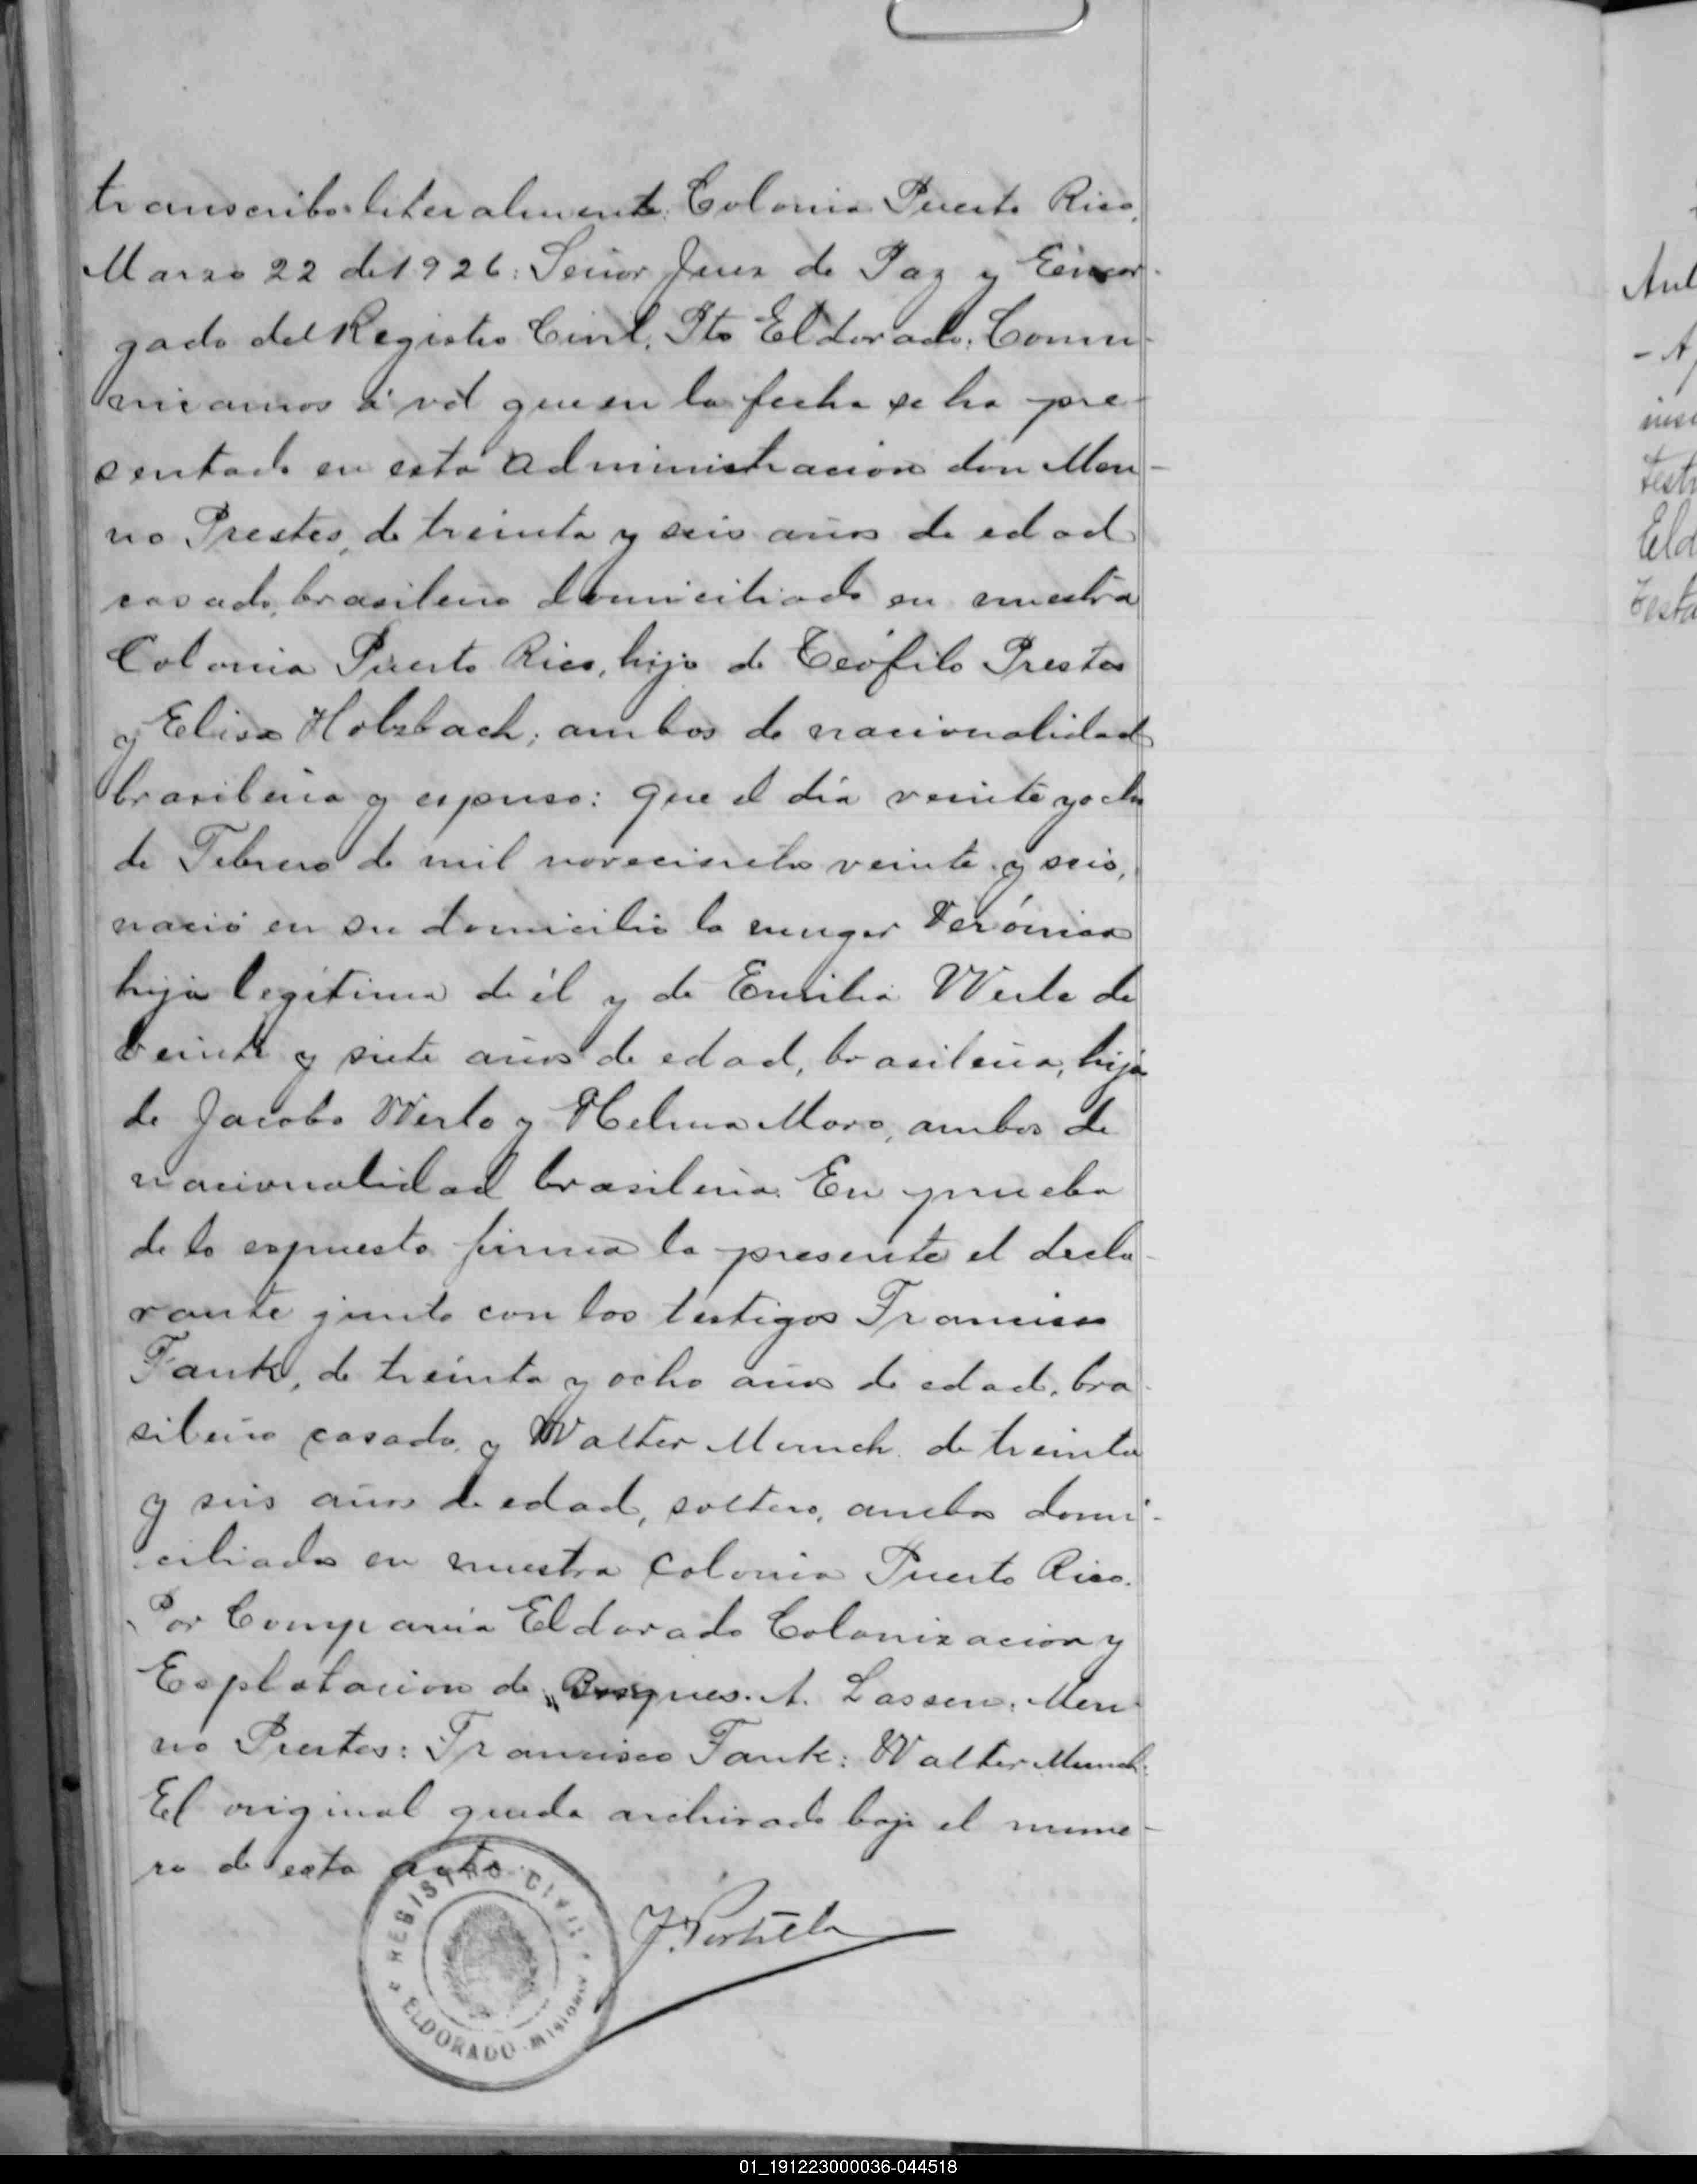 transcribo literalmente: Colonia Puerto Rico,
Marzo 22 de 1926: Señor Juez de Paz y Encar-
gado del Registro Civil. Pto Eldorado: Comu-
nicamos á vd que en la fecha se ha pre-
sentado en esta administración don Men-
no Prestes, de treinta y seis años de edad
casado, brasileño domiciliado en nuestra
Colonia Puerto Rico, hijo de Teófilo Prestes
y Elisa Holzbach; ambos de nacionalidad
brasileña y expuso: que el día veinte y ocho
de Febrero de mil novecientos veinte y seis,
nació en su domicilio la muger Verónica
hija legítima de él y de Emilia Werle de
veinte y siete años de edad, brasileña, hija
de Jacobo Werle y Helma Moro, ambos de
nacionalidad brasileña. En prueba
de lo expuesto firma la presente el decla-
rante junto con los testigos Francisco
Fank, de treinta y ocho años de edad, bra-
sileño casado y Walter Munch de treinta
y seis años de edad, soltero, ambos domi-
ciliados en nuestra colonia Puerto Rico.
Por Compañia Eldorado Colonizacion y
Esplotacion de Bosques. A. Lassen. Men-
no Prestes: Francisco Fank: Walter Munch:
El original queda archivado bajo el nume-
ro de esta acta.
J. Portela
REGISTRO CIVIL
ELDORADO MISIONES
Aut
- A
ins
test
Eld
Testa
01_191223000036-044518